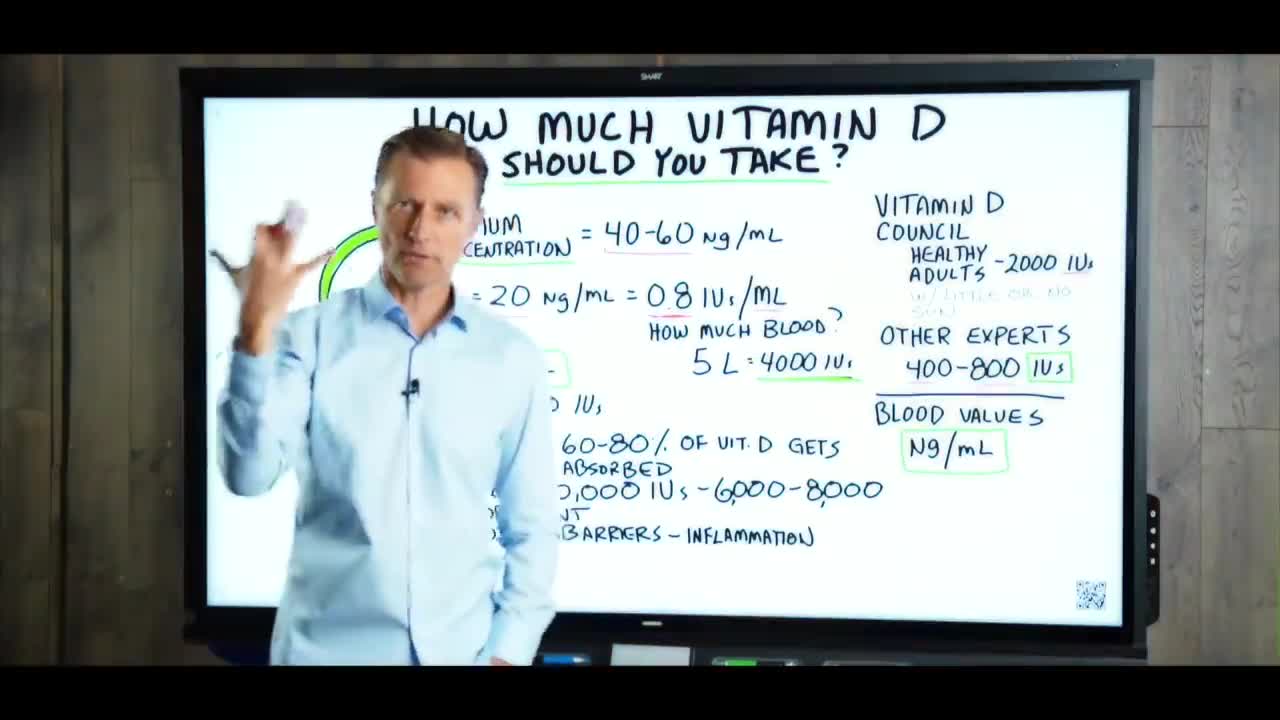 SMART
HOW MUCH VITAMIN D
SHOULD YOU TAKE?
= 40-60 Ng/mL
CENTRATION
= 20 Ng/mL = 0.8 IUs/mL
HOW MUCH BLOOD?
5 L = 4000 IUs
IUs
60-80% OF VIT. D GETS
ABSORBED
0,000 IUs - 6,000-8,000
BARRIERS - INFLAMMATION
VITAMIN D
COUNCIL
HEALTHY
ADULTS - 2000 IUs
W/ LITTLE OR NO
SUN
OTHER EXPERTS
400-800 IUs
BLOOD VALUES
Ng/mL